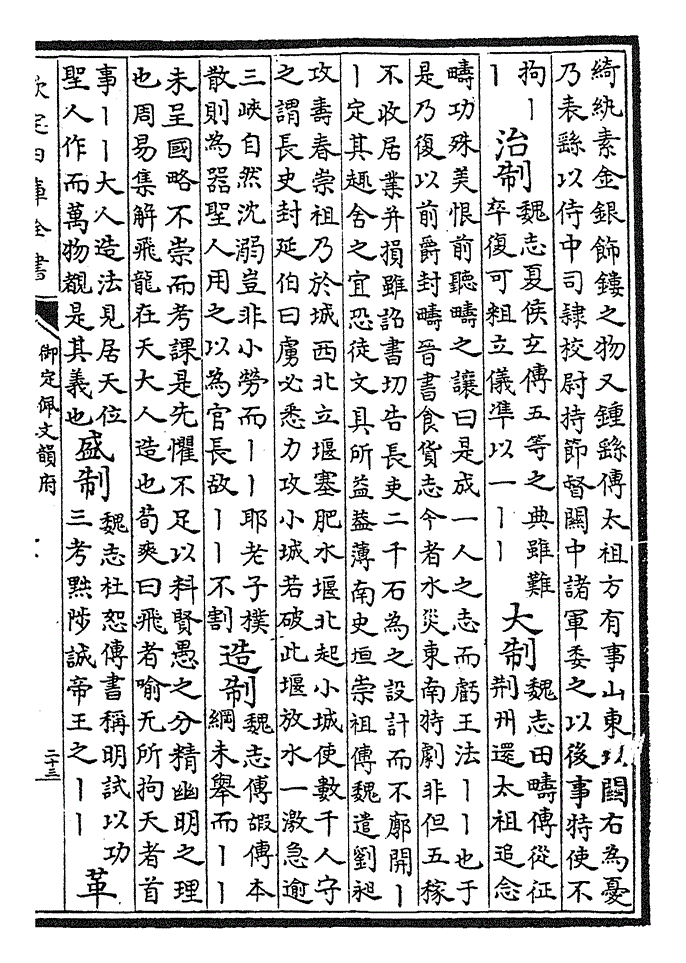 綺紈素金銀飾鏤之物又鍾繇傳太祖方有事山東以關右為憂
乃表繇以侍中司隸校尉持節督關中諸軍委之以後事特使不
拘丨
丨
治制
魏志夏侯玄傳五等之典雖難
卒復可粗立儀準以一丨丨
大制
魏志田疇傳從征
荆州還太祖追念
疇功殊美恨前聽疇之讓曰是成一人之志而虧王法丨丨也于
是乃復以前爵封疇晉書食貨志今者水災東南特劇非但五稼
不收居業并損雖詔書切告長吏二千石為之設計而不廓開丨
丨定其趣舍之宜恐徒文具所益蓋薄南史垣崇祖傳魏遣劉昶
攻壽春崇祖乃於城西北立堰塞肥水堰北起小城使數千人守
之謂長史封延伯曰虜必悉力攻小城若破此堰放水一激急逾
三峽自然沈溺豈非小勞而丨丨耶老子樸
散則為器聖人用之以為官長故丨丨不割
造制
魏志傅嘏傳本
綱未舉而丨丨
未呈國略不崇而考課是先懼不足以料賢愚之分精幽明之理
也周易集解飛龍在天大人造也荀爽曰飛者喻无所拘天者首
事丨丨大人造法見居天位
聖人作而萬物覩是其義也
盛制
魏志杜恕傳書稱明試以功
三考黜陟誠帝王之丨丨
革
欽定四庫全書
御定佩文韻府
二十三